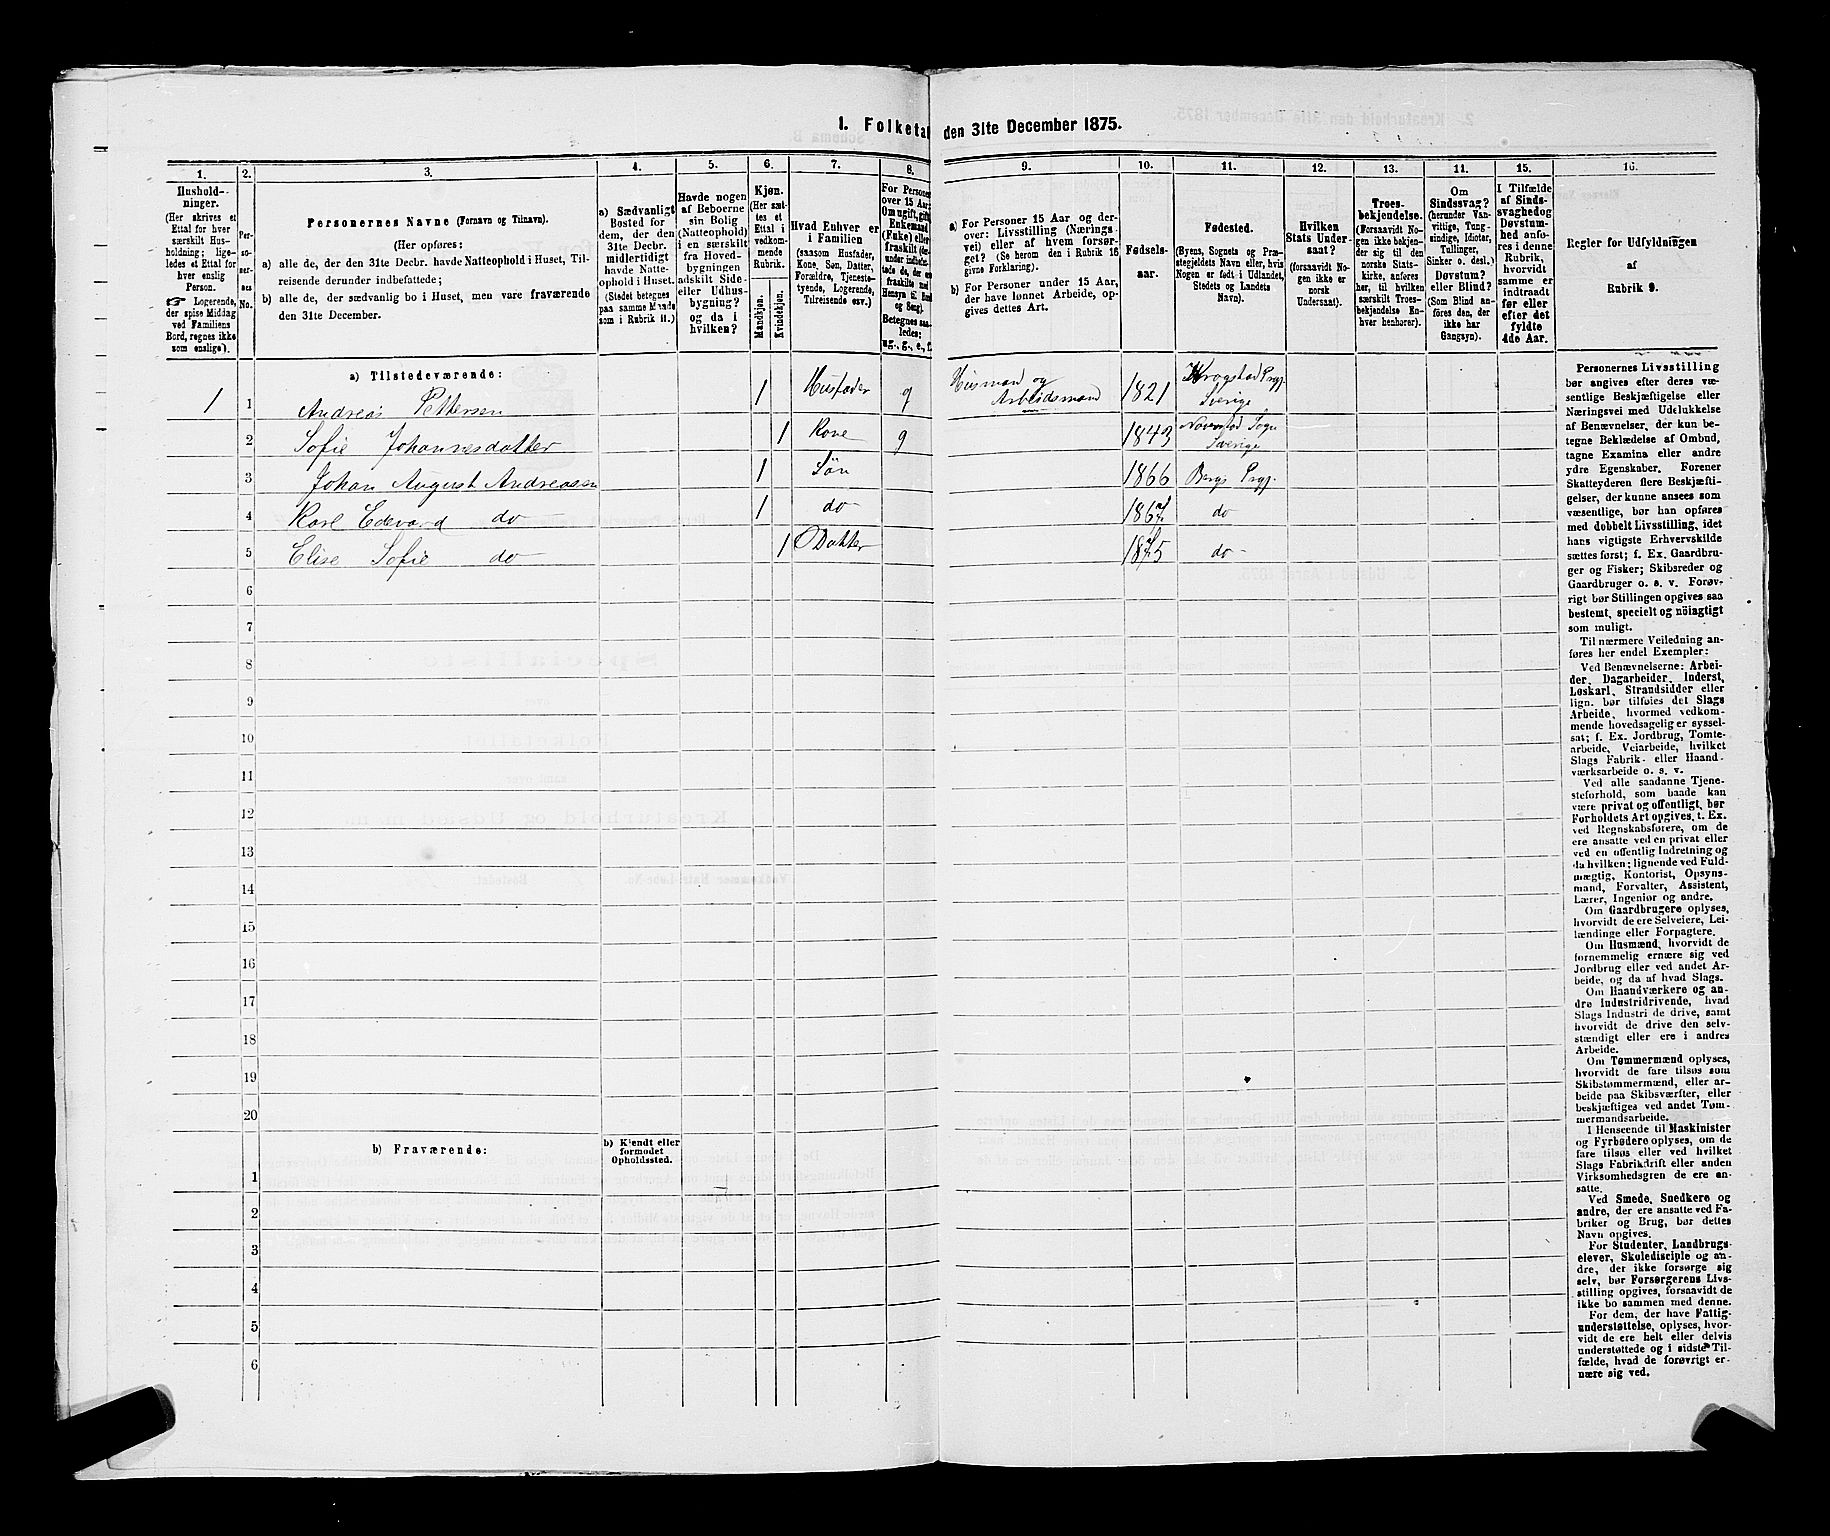 1. Folketal den 31te December 1875.
1. 2. 3. 4. 5. 6. 7. 8. 9. 10. 11. 12. 13. 14. 15. 16.
Hushold-
ninger.
(Her skrives et
Ettal for hver
særskilt Hus-
holdning; lige-
ledes et Ettal for
hver enslig
Person.
☞ Logerende,
der spise Middag
ved Familiens
Bord, regnes ikke
som enslige).
Per-
so-
ner-
nes
No.
Personernes Navne (Fornavn og Tilnavn).
(Her opføres:
a) alle de, der den 31te Decbr. havde Natteophold i Huset, Til-
reisende derunder indbefattede;
b) alle de, der sædvanlig bo i Huset, men vare fraværende
den 31te December.
a) Sædvanligt
Bosted for
dem, der den
31te Decbr.
midlertidigt
havde Natte-
ophold i Huset.
(Stedet betegnes
paa samme Maade
som i Rubrik 11.)
Havde nogen
af Beboerne
sin Bolig
(Natteophold)
i en særskilt
fra Hoved-
bygningen
adskilt Side-
eller Udhus-
bygning?
og da i
hvilken?
Kjøn.
(Her sæt-
tes et
Ettal i
vedkom-
mende
Rubrik.
Mandkjøn.
Kvindekjøn.
Hvad Enhver er
i Familien
(saasom Husfader,
Kone, Søn, Datter,
Forældre, Tjeneste-
tyende, Logerende,
Tilreisende osv.)
For Personer
over 15 Aar:
Om ugift, gift,
Enkemand
(Enke) eller
fraskilt
Betegnes saa-
ledes:
ug., g., e., f.
a) For Personer 15 Aar og der-
over: Livsstilling (Nærings-
vei) eller af hvem forsør-
get? (Se herom den i Rubrik 16
givne Forklaring).
b) For Personer under 15 Aar,
der have lønnet Arbeide, op-
gives dettes Art.
Fødsels-
aar.
Fødested.
(Byens, Sognets og Præ-
stegjeldets Navn eller, hvis
Nogen er født i Udlandet,
Stedets og Landets
Navn).
Hvilken
Stats Under-
saat?
(forsaavidt No-
gen ikke er
norsk
Undersaat).
Troes-
bekjendelse.
(Forsaavidt No-
gen ikke bekjen-
der sig til den
norske Stats-
kirke, anføres
her, til hvilken
særskilt Troes-
bekjendelse En-
hver henhører).
Om
Sindssvag?
(herunder Van-
vittige, Tung-
sindige, Idioter,
Tullinger,
Sinker o. desl.)
Døvstum?
eller Blind?
(Som Blind an-
føres den, der
ikke har
Gangsyn).
I Tilfælde
af Sinds-
svaghed og
Døvstum-
hed anfø-
res i denne
Rubrik,
hvorvidt
samme er
indtraadt
før eller
efter det
fyldte
4de Aar.
Regler for Udfyldningen
af
Rubrik 9.
a) Tilstedeværende:
1 1 Andreas Pettersen 1 Husfader g Husmand og Arbeidsmand 1821 Krogstad Prgj. Sverige
2 Sofie Johannesdatter 1 Kone g 1843 Sogn Sverige
3 Johan August Andreasen 1 Søn 1866 Bergs Prgj.
4 Karl Edevard do 1 do 1867 do
5 Elise Sofie do 1 Datter 1875 do
6
7
8
9
10
11
12
13
14
15
16
17
18
19
20
b) Fraværende:
b) Kjendt eller
formodet
Opholdssted.
1
2
3
4
5
6
Personernes Livsstilling
bør angives efter deres væ-
sentlige Beskjæftigelse eller
Næringsvei med Udelukkelse
af Benævnelser, der kun be-
tegne Beklædelse af Ombud,
tagne Examina eller andre
ydre Egenskaber. Forener
Skatteyderen flere Beskjæfti-
gelser, der kunne ansees som
væsentlige, bør han opføres
med dobbelt Livsstilling, idet
hans vigtigste Erhvervskilde
sættes først; f. Ex. Gaardbru-
ger og Fisker; Skibsreder og
Gaardbruger o. s. v. Forøv-
rigt bør Stillingen opgives saa
bestemt, specielt og nøiagtigt
som muligt.
Til nærmere Veiledning an-
føres her endel Exempler:
Ved Benævnelserne: Arbei-
der, Dagarbeider, Inderst,
Løskarl, Strandsidder eller
lign. bør tilføies det Slags
Arbeide, hvormed vedkom-
mende hovedsagelig er syssel-
sat; f. Ex. Jordbrug, Tomte-
arbeide, Veiarbeide, hvilket
Slags Fabrik- eller Haand-
værksarbeide o. s. v.
Ved alle saadanne Tjene-
steforhold, som baade kan
være privat og offentligt, bør
Forholdets Art opgives, t. Ex.
ved Regnskabsførere, om de
ere ansatte ved en privat eller
ved en offentlig Indretning og
da hvilken; lignende ved Fuld-
mægtig, Kontorist, Opsyns-
mand, Forvalter, Assistent,
Lærer, Ingeniør og andre.
Om Gaardbrugere oplyses,
hvorvidt de ere Selveiere, Lei-
lændinge eller Forpagtere.
Om Husmænd, hvorvidt de
fornemmelig ernære sig ved
Jordbrug eller ved andet Ar-
beide, og da af hvad Slags.
Om Haandværkere og an-
dre Industridrivende, hvad
Slags Industri de drive, samt
hvorvidt de drive den selv-
stændigt eller ere i andres
Arbeide.
Om Tømmermænd oplyses,
hvorvidt de fare tilsøs som
Skibstømmermænd, eller ar-
beide paa Skibsværfter, eller
beskjæftiges ved andet Tøm-
mermandsarbeide.
I Henseende til Maskinister
og Fyrbødere oplyses, om de
fare tilsøs eller ved hvilket
Slags Fabrikdrift eller anden
Virksomhedsgren de ere an-
satte.
Ved Smede, Snedkere og
andre, der ere ansatte ved Fa-
briker og Brug, bør dettes
Navn opgives.
For Studenter, Landbrugs-
elever, Skoledisciple og an-
dre, der ikke forsørge sig
selv, bør Forsørgerens Livs-
stilling opgives, forsaavidt de
ikke bo sammen med denne.
For dem, der have Fattig-
understøttelse, oplyses, hvor-
vidt de ere helt eller delvis
understøttede og i sidste Til-
fælde, hvad de forøvrigt er-
nære sig ved.